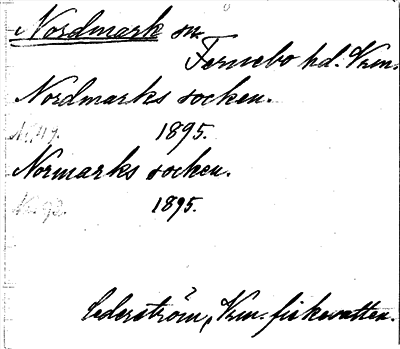 Nordmark sn
Fernebo hd. Vrm.
Nordmarks socken.
N. 117. 1895.
Normarks socken.
1895.
Cederström, Vrm. fiskevatten.